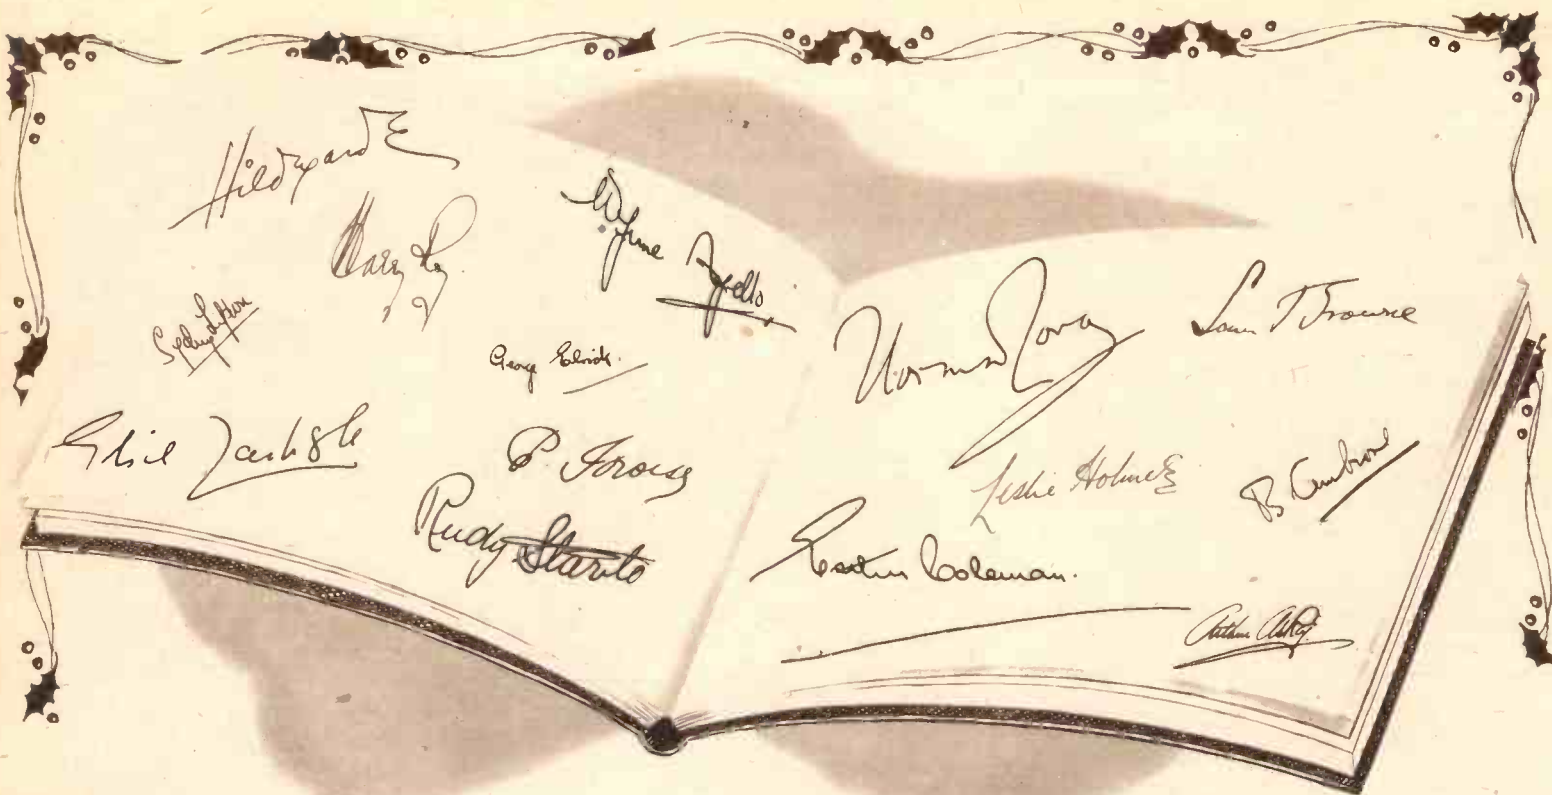 Hildegarde
Harry Roy
Wynne Ajello
Sydney Lipton
George Elrick.
Elsie Carlisle
Rudy Starita
Norman Long
Sam Browne
Leslie Holmes
B. Ambrose
Eestin Coleman.
Arthur Askey